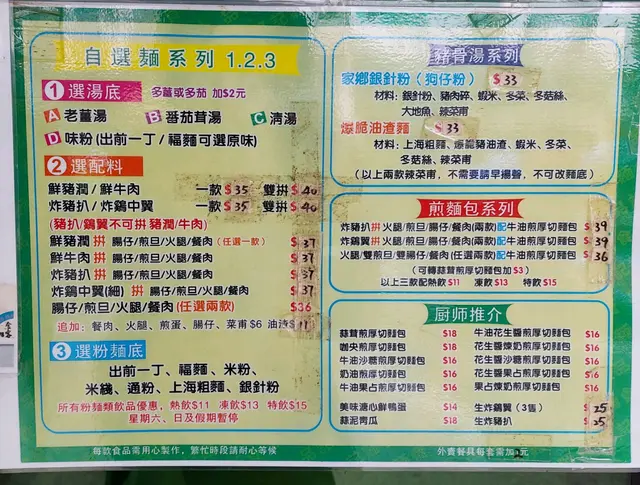 自選麵系列 1.2.3
1 選湯底 多薑或多茄 加$2元
A 老薑湯 B 番茄茸湯 C 清湯
D 味粉(出前一丁/福麵可選原味)
2 選配料
鮮豬潤/鮮牛肉 一款$35 雙拼$40
炸豬扒/炸鷄中翼 一款$35 雙拼$40
(豬扒/鷄翼不可拼豬潤/牛肉)
鮮豬潤拼 腸仔/煎旦/火腿/餐肉(任選一款) $37
鮮牛肉拼 腸仔/煎旦/火腿/餐肉 $37
炸豬扒拼 腸仔/煎旦/火腿/餐肉 $37
炸鷄中翼(細)拼 腸仔/煎旦/火腿/餐肉 $37
腸仔/煎旦/火腿/餐肉(任選兩款) $36
追加：餐肉、火腿、煎蛋、腸仔、菜甫$6 油渣$11
3 選粉麵底
出前一丁、福麵、米粉、
米綫、通粉、上海粗麵、銀針粉
所有粉麵類飲品優惠，熱飲$11 凍飲$13 特飲$15
星期六、日及假期暫停
豬骨湯系列
家鄉銀針粉(狗仔粉) $33
材料：銀針粉、豬肉碎、蝦米、冬菜、冬菇絲、
大地魚、辣菜甫
爆脆油渣麵 $33
材料：上海粗麵、爆脆豬油渣、蝦米、冬菜、
冬菇絲、辣菜甫
(以上兩款辣菜甫，不需要請早揚聲，不可改麵底)
煎麵包系列
炸豬扒拼火腿/煎旦/腸仔/餐肉(兩款)配牛油煎厚切麵包 $39
炸鷄翼拼火腿/煎旦/腸仔/餐肉(兩款)配牛油煎厚切麵包 $39
火腿/雙煎旦/雙腸仔/餐肉(任選兩款)配牛油煎厚切麵包 $36
(可轉蒜茸煎厚切麵包加$3)
以上三款配熱飲$11 凍飲$13 特飲$15
厨师推介
蒜茸煎厚切麵包 $18 牛油花生醬煎厚切麵包 $16
咖央煎厚切麵包 $18 花生醬煉奶煎厚切麵包 $16
牛油沙糖煎厚切麵包 $16 花生醬沙糖煎厚切麵包 $16
奶油煎厚切麵包 $16 花生醬果占煎厚切麵包 $16
牛油果占煎厚切麵包 $16 果占煉奶煎厚切麵包 $16
美味溏心鮮鴨蛋 $14 生炸鷄翼(3隻) $25
蒜泥青瓜 $18 生炸豬扒 $25
每款食品需用心製作，繁忙時段請耐心等候
外賣餐具每套需加元